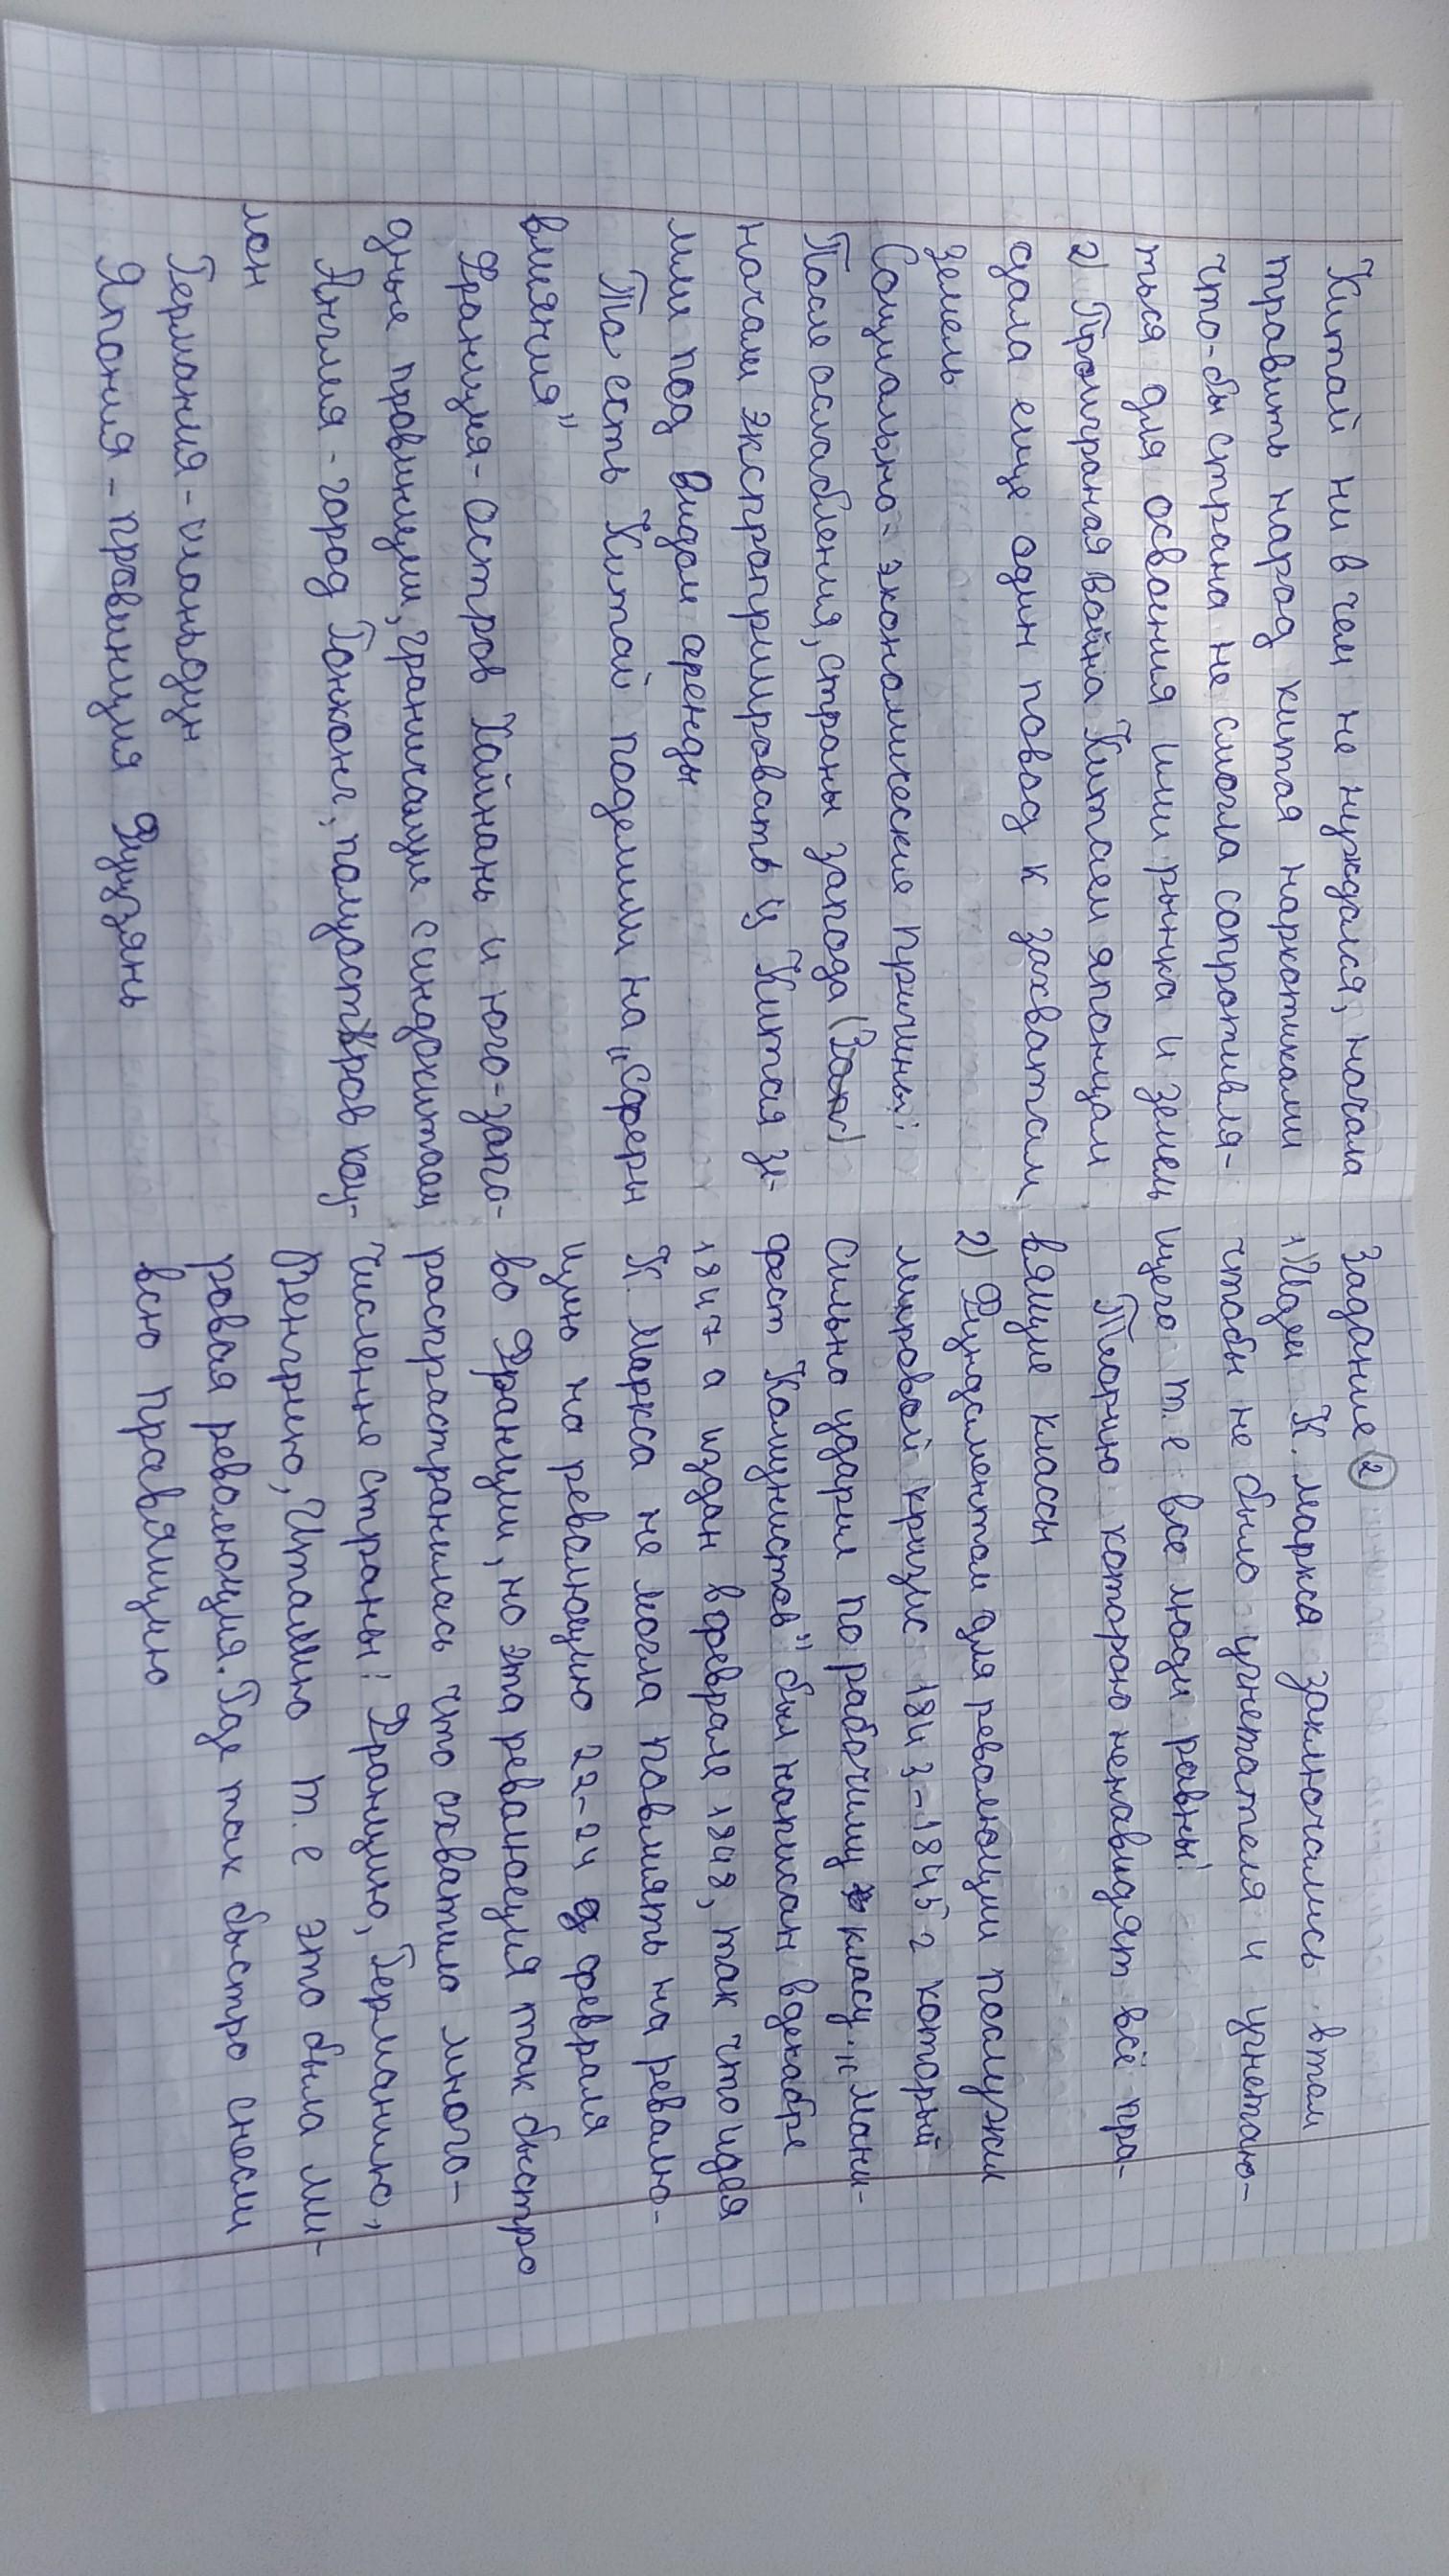 Китай ни в чем не нуждался, начала
травить народ китая наркотиками
что-бы страна не смогла сопротивля-
ться для освоения ими рынка и земель
2) Проиграная война Китаем японцам
дала еще один повод к захватам
земель
Социально-экономические причины:
После ослабления, страны запода (Зап)
начали экспроприировать у Китая зе-
мли под видом аренды
То есть Китай поделили на „Сферы
влияния"
Франция-остров Хайнань и юго-запа-
дные провинции, граничащие с индокитаем
Англия - город Гонконг, полуостров коу-
лон
Германия - шаньдун
Япония - провинция Фуцзянь
Задание 2
1) Идеи К. маркса заключались в том
чтобы не было угнетателя и угнетаю-
щего т.е все люди равны!
Теорию которою ненавидят всё пра-
вящие классы
2) Фундаментом для революции послужил
мировой кризис 1843-1845 г который
Сильно ударил по рабочиму класу. „Мани-
фест Комунистов" был написан в декабре
1847 а издан в феврале 1848, так что идея
К. Маркса не могла повлиять на револю-
цию на революцию 22-24 февраля
во Франции, но эта революция так быстро
распространилась что охватило много-
численые страны: Францию, Германию,
Венгрию, Италию т.е это была ми-
ровая революция. Где так быстро снесли
всю правящию